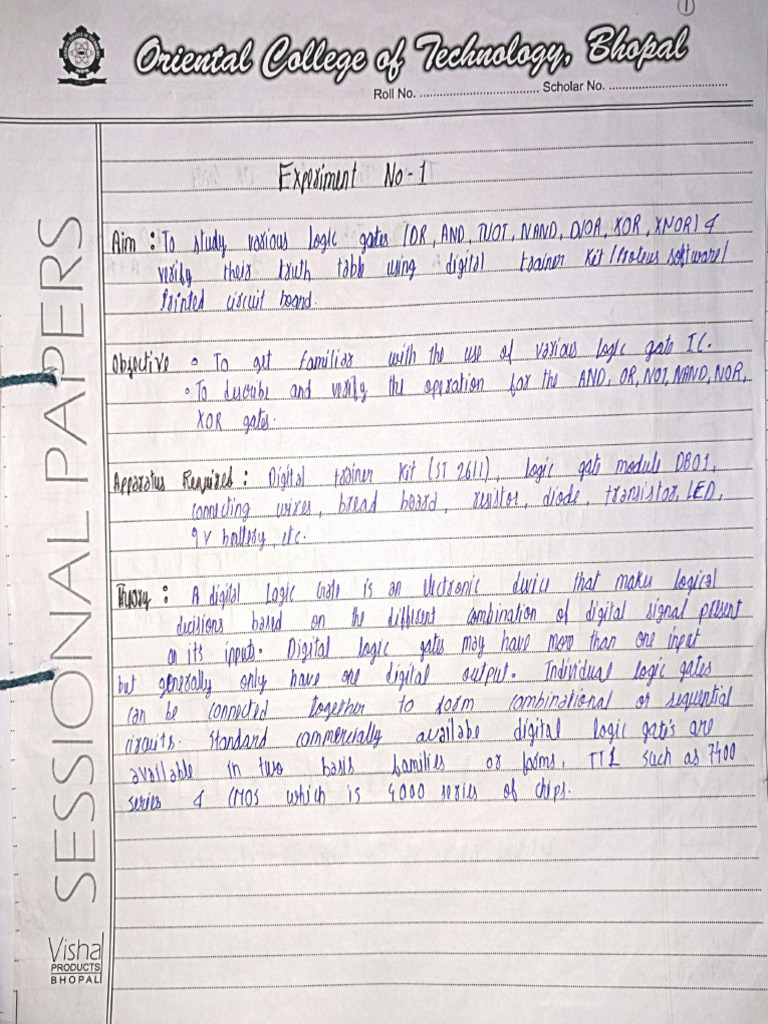 1
Oriental College of Technology, Bhopal
Roll No. .................................. Scholar No. ..................................
Experiment No - 1
Aim : To study various logic gates (OR, AND, NOT, NAND, NOR, XOR, XNOR) &
verify their truth table using digital trainer kit / Proteus software /
Printed circuit board.
Objective • To get familiar with the use of various logic gate IC.
• To describe and verify the operation for the AND, OR, NOT, NAND, NOR,
XOR gates.
Apparatus Required : Digital trainer kit (ST 2611), logic gate module DB01,
connecting wires, bread board, resistor, diode, transistor, LED,
9 V battery, etc.
Theory : A digital Logic Gate is an electronic device that makes logical
decisions based on the different combination of digital signal present
on its inputs. Digital logic gates may have more than one input
but generally only have one digital output. Individual logic gates
can be connected together to form combinational or sequential
circuits. Standard commercially available digital logic gate's are
available in two basis families or forms, TTL such as 7400
series & CMOS which is 4000 series of chips.
SESSIONAL PAPERS
Vishal
PRODUCTS
BHOPAL